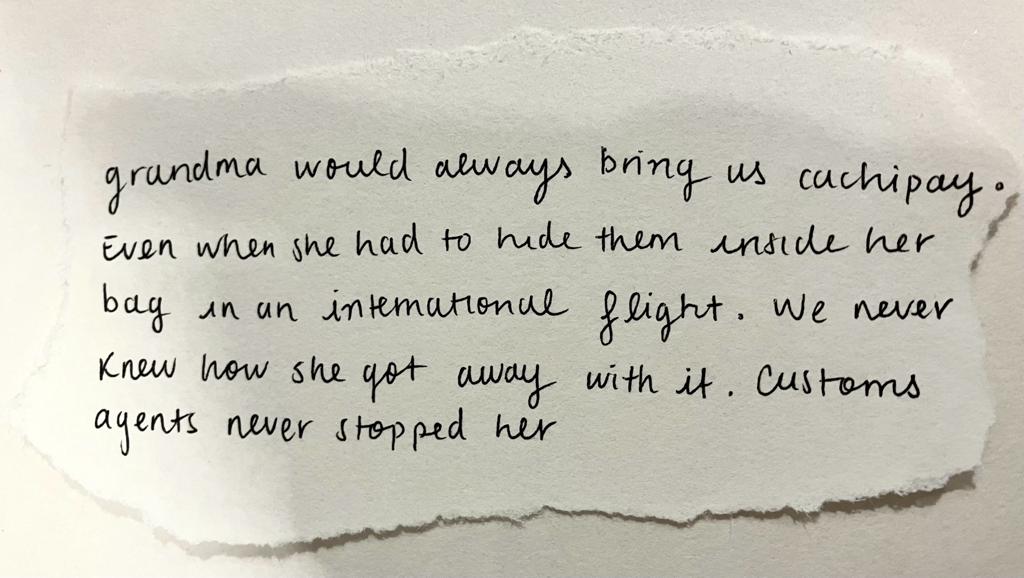 grandma would always bring us cachipay.
Even when she had to hide them inside her
bag in an international flight. We never
Knew how she got away with it. Customs
agents never stopped her